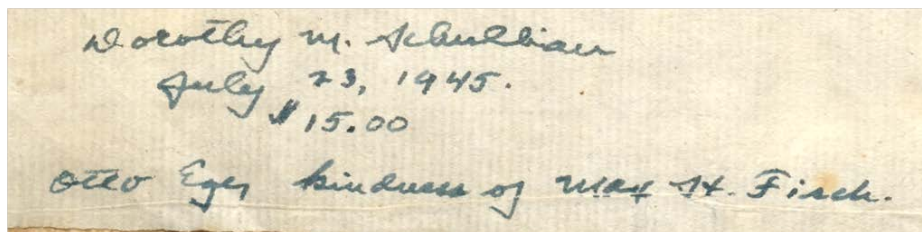 Dorothy M. Schullian
July 23, 1945.
$15.00
Otto Ege, kindness of Max H. Fisch.